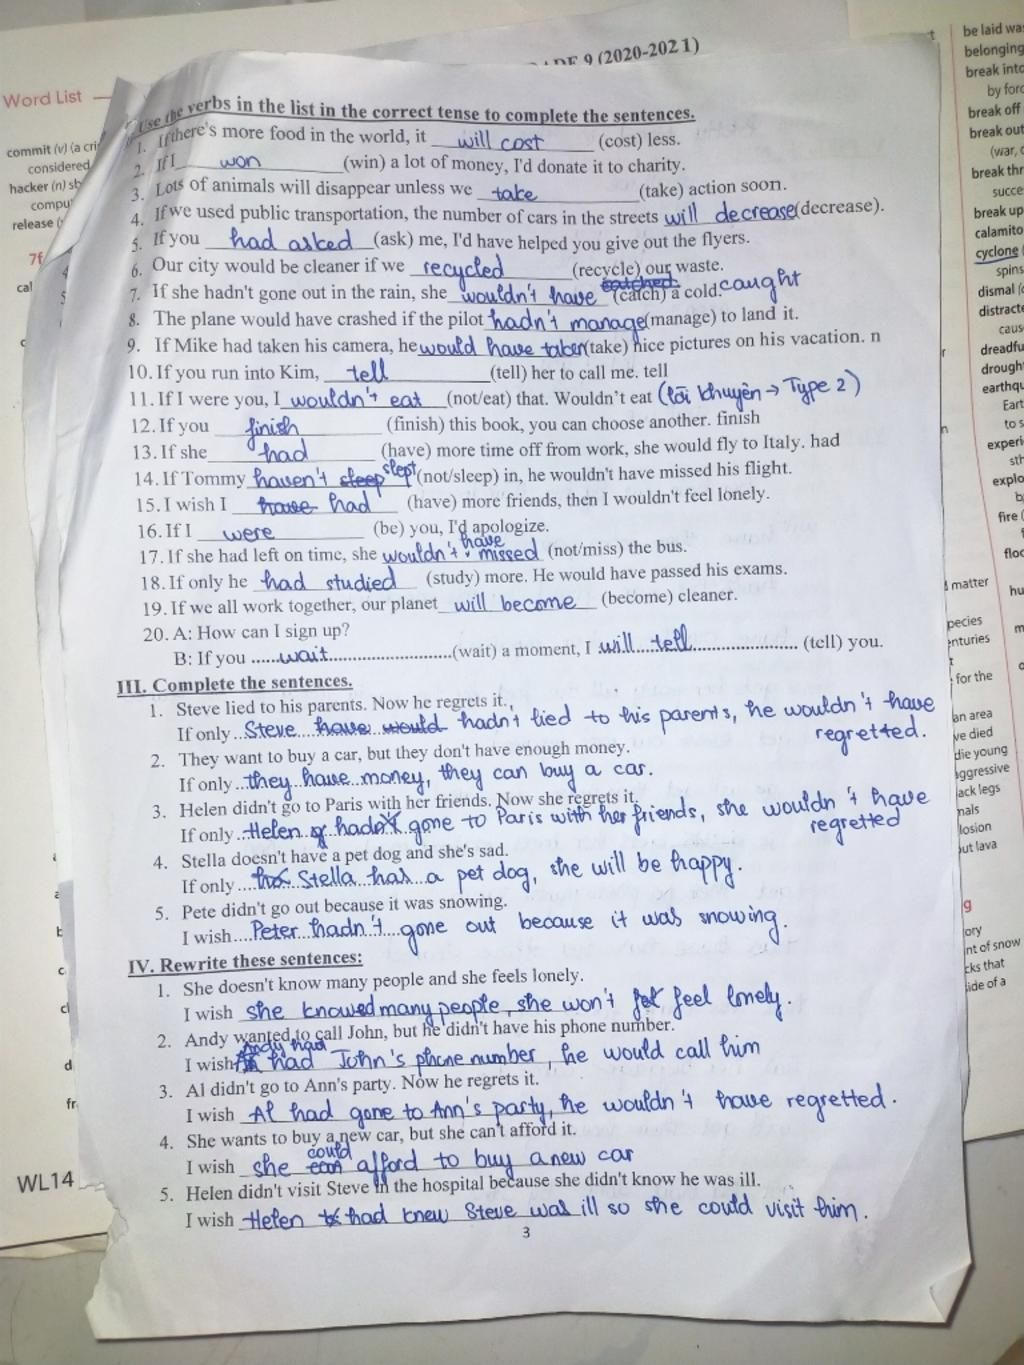 ADE 9 (2020-2021)
Use the verbs in the list in the correct tense to complete the sentences.
1. If there's more food in the world, it will cost (cost) less.
2. If I won (win) a lot of money, I'd donate it to charity.
3. Lots of animals will disappear unless we take (take) action soon.
4. If we used public transportation, the number of cars in the streets will decrease (decrease).
5. If you had asked (ask) me, I'd have helped you give out the flyers.
6. Our city would be cleaner if we recycled (recycle) our waste.
7. If she hadn't gone out in the rain, she wouldn't have catched (catch) a cold. caught
8. The plane would have crashed if the pilot hadn't manage (manage) to land it.
9. If Mike had taken his camera, he would have taken (take) nice pictures on his vacation. n
10. If you run into Kim, tell (tell) her to call me. tell
11. If I were you, I wouldn't eat (not/eat) that. Wouldn't eat (lời khuyên → Type 2)
12. If you finish (finish) this book, you can choose another. finish
13. If she had (have) more time off from work, she would fly to Italy. had
14. If Tommy haven't sleep slept (not/sleep) in, he wouldn't have missed his flight.
15. I wish I have had (have) more friends, then I wouldn't feel lonely.
16. If I were (be) you, I'd apologize.
17. If she had left on time, she wouldn't have missed (not/miss) the bus.
18. If only he had studied (study) more. He would have passed his exams.
19. If we all work together, our planet will become (become) cleaner.
20. A: How can I sign up?
B: If you ......wait........................(wait) a moment, I will....tell..................... (tell) you.
III. Complete the sentences.
1. Steve lied to his parents. Now he regrets it.
If only ..Steve have would hadn't lied to his parents, he wouldn't have
regretted.
2. They want to buy a car, but they don't have enough money.
If only ...they have money, they can buy a car.
3. Helen didn't go to Paris with her friends. Now she regrets it.
If only ..Helen had gone to Paris with her friends, she wouldn't have
regretted
4. Stella doesn't have a pet dog and she's sad.
If only .... Stella has a pet dog, she will be happy.
5. Pete didn't go out because it was snowing.
I wish....Peter hadn't gone out because it was snowing.
IV. Rewrite these sentences:
1. She doesn't know many people and she feels lonely.
I wish she knowed many people, she won't feel lonely.
2. Andy wanted to call John, but he didn't have his phone number.
I wish Andy had had John's phone number, he would call him
3. Al didn't go to Ann's party. Now he regrets it.
I wish Al had gone to Ann's party, he wouldn't have regretted.
4. She wants to buy a new car, but she can't afford it.
I wish she can could afford to buy a new car
5. Helen didn't visit Steve in the hospital because she didn't know he was ill.
I wish Helen had knew Steve was ill so she could visit him.
3
Word List
commit (v) (a cri
considered
hacker (n) sb
comput
release (
7f
cal
WL14
be laid wa
belonging
break into
by forc
break off
break out
(war, c
break thr
succe
break up
calamito
cyclone
spins
dismal (
distracte
caus
dreadfu
drough
earthqu
Eart
to s
experi
sth
explo
fire (
floo
hu
d matter
pecies
enturies
for the
an area
ve died
die young
aggressive
ack legs
nals
losion
out lava
g
ory
nt of snow
cks that
side of a